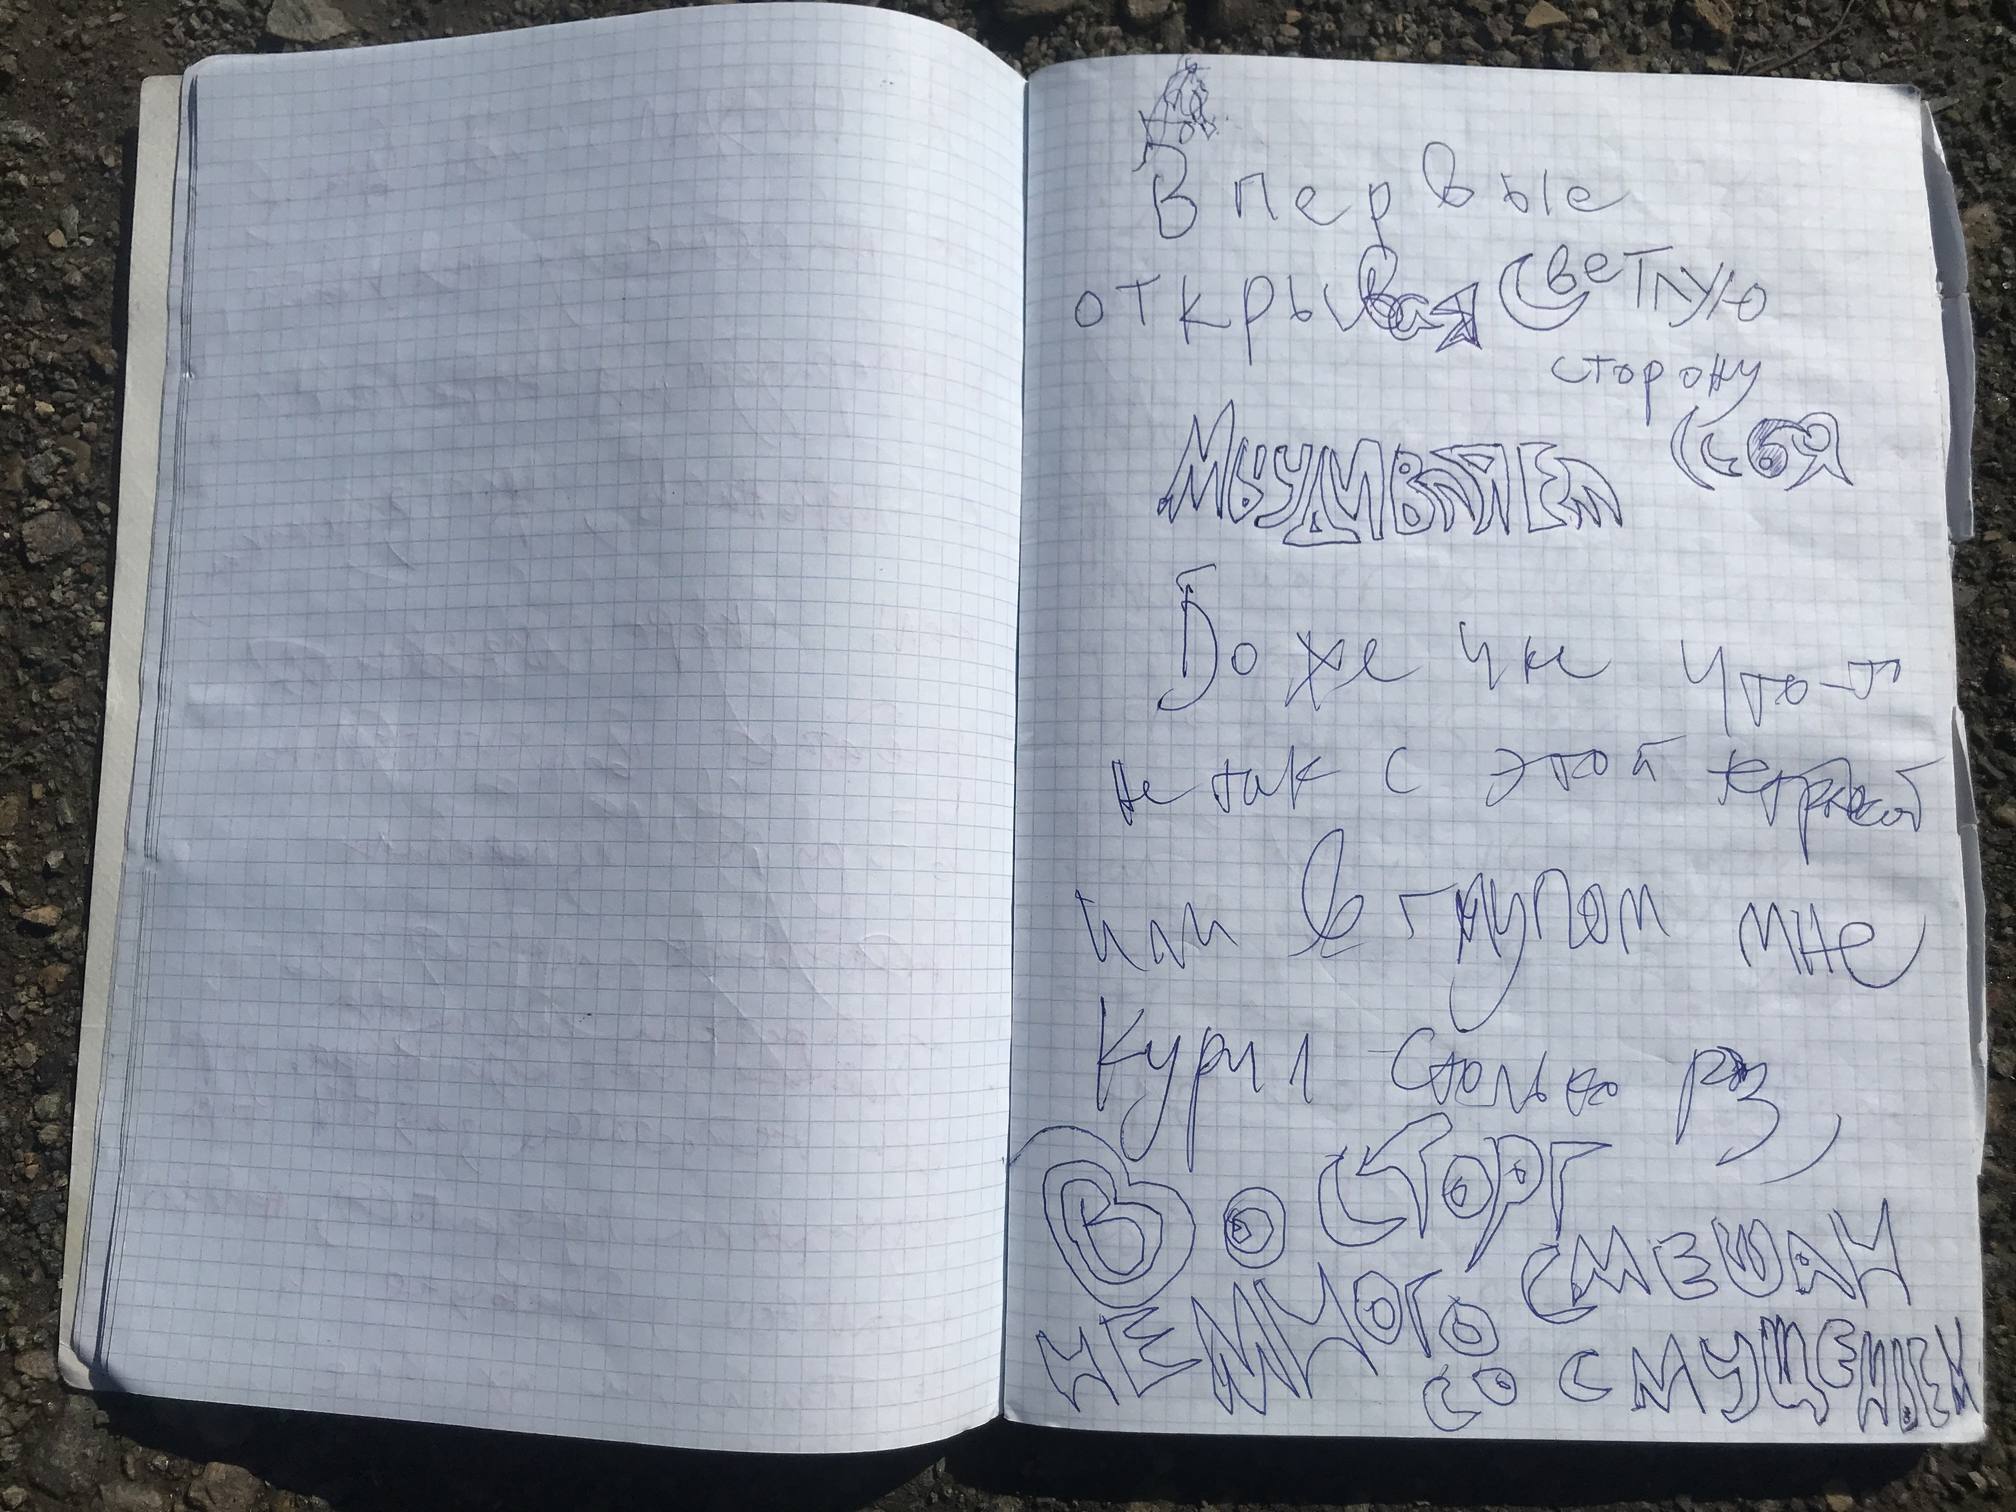 Впервые
открывая Светлую
сторону
себя
Мы удивляем
Боже уже что-то
не так с этой
или в глупом мне
Курил столько раз,
Восторг
немного смешан
со смущеньем